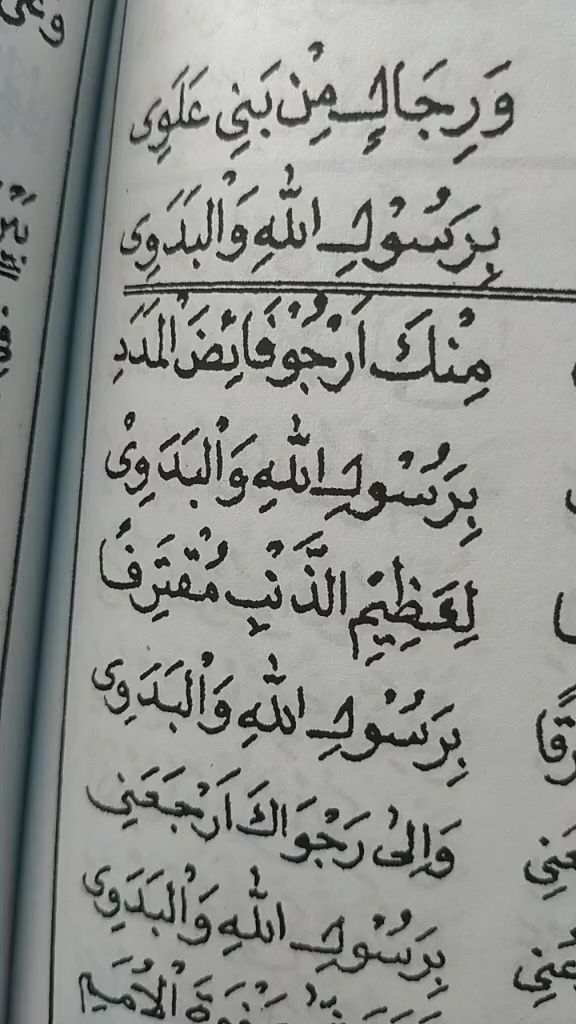 وَرِجَالٍ مِنْ بَنِي عَلَوِى
بِرَسُوْلِ اللهِ وَالْبَدَوِى
مِنْكَ اَرْجُوْ فَائِضَ الْمَدَدِ
بِرَسُوْلِ اللهِ وَالْبَدَوِىْ
لِعَظِيْمِ الذَّنْبِ مُقْتَرِفُ
بِرَسُوْلِ اللهِ وَالْبَدَوِى
وَاِلىٰ رَجْوَاكَ اَرْجَعَنِى
بِرَسُوْلِ اللهِ وَالْبَدَوِى
الْاُمَمِ